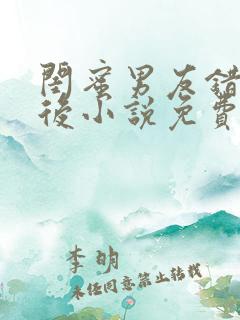 閨蜜男友錯
後小說免費
李明
未任同意禁止转载